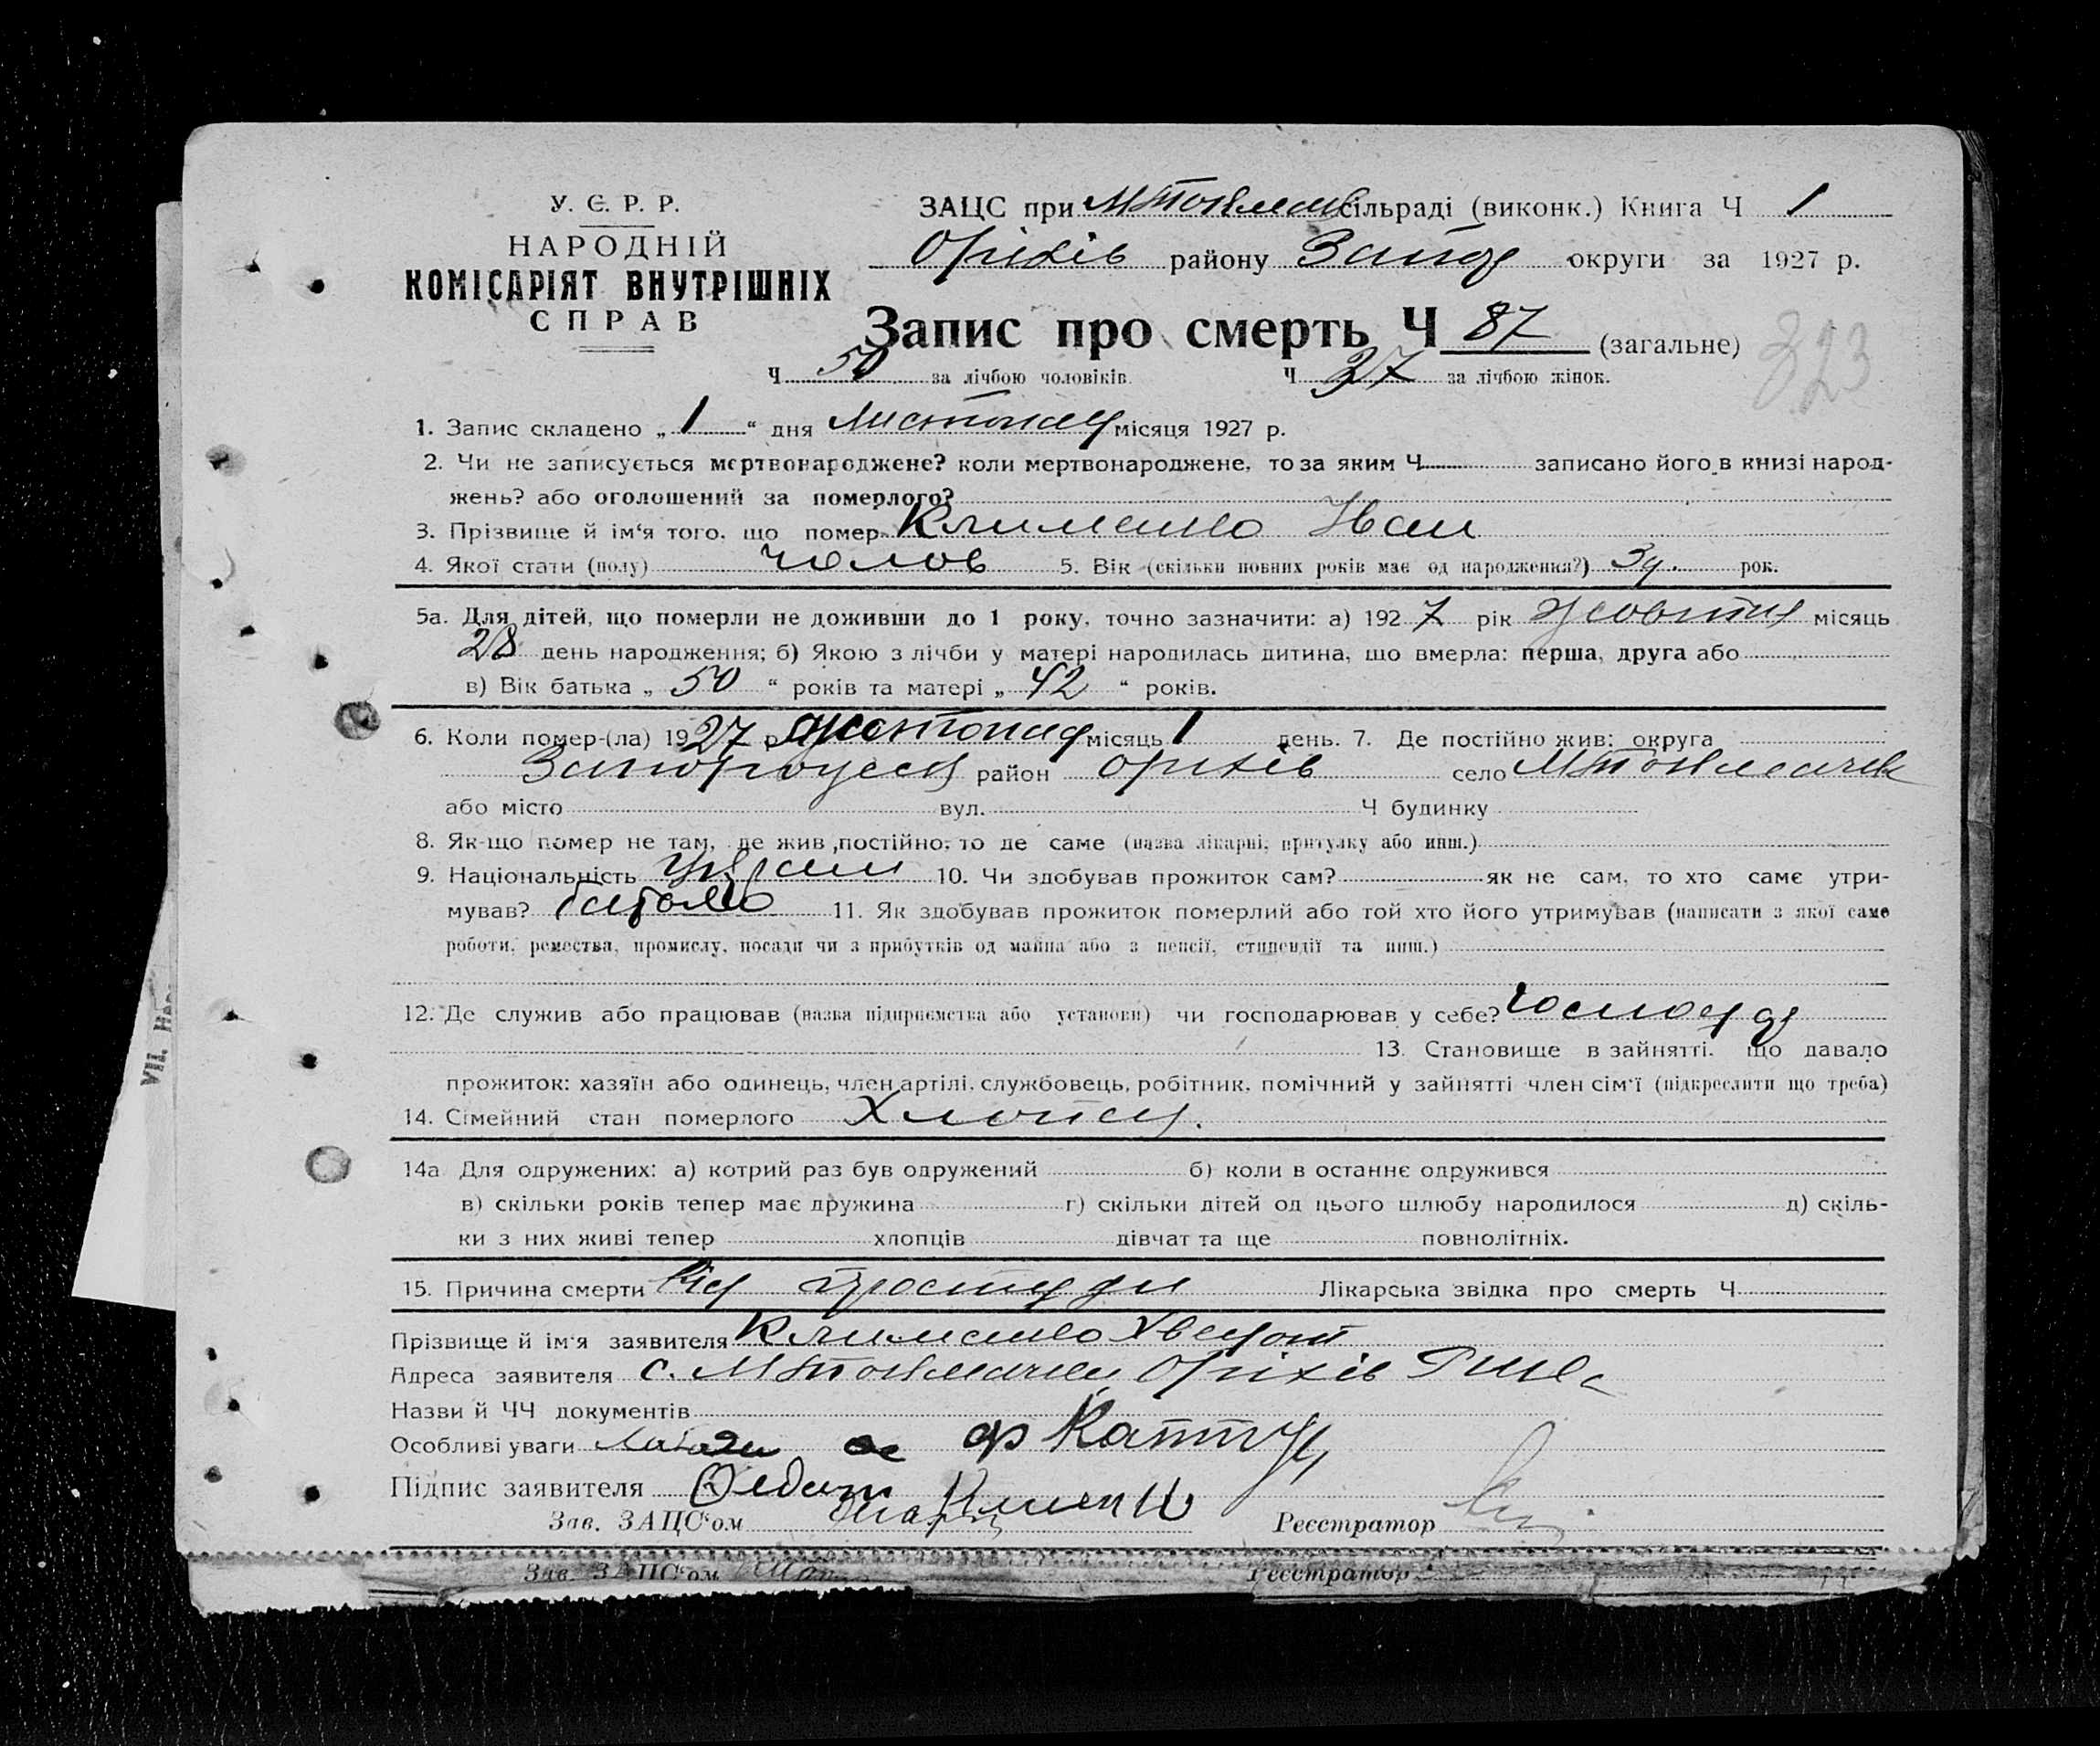 У. Є. Р. Р.
НАРОДНІЙ
КОМІСАРІЯТ ВНУТРІШНІХ
СПРАВ
ЗАЦС при МТокмач сільраді (виконк.) Книга Ч 1
Оріхів району Запор округи за 1927 р.
Запис про смерть Ч 87 (загальне)
323
Ч 50 за лічбою чоловіків. Ч 37 за лічбою жінок.
1. Запис складено „ 1 “ дня листопад місяця 1927 р.
2. Чи не записується мертвонароджене? коли мертвонароджене, то за яким Ч записано його в книзі народ-
жень? або оголошений за померлого?
3. Прізвище й ім‘я того, що помер Клименко Іван
4. Якої стати (полу) чолов 5. Вік (скільки повних років має од народження?) 3 д. рок.
5а. Для дітей, що померли не доживши до 1 року, точно зазначити: а) 1927 рік жовтня місяць
28 день народження; б) Якою з лічби у матері народилась дитина, що вмерла: перша, друга або
в) Вік батька „ 50 “ років та матері „ 42 “ років.
6. Коли помер-(ла) 1927 р. листопад місяць 1 день. 7. Де постійно жив: округа
район Оріхів село МТокмачка
або місто вул. Ч будинку
8. Як-що помер не там, де жив постійно, то де саме (назва лікарні, притулку або инш.)
9. Національність україн 10. Чи здобував прожиток сам? як не сам, то хто саме утри-
мував? батько 11. Як здобував прожиток померлий або той хто його утримував (написати з якої саме
роботи, ремества, промислу, посади чи з прибутків од майна або з пенсії, стипендії та инш.)
12. Де служив або працював (назва підприємства або установи) чи господарював у себе?
13. Становище в зайнятті, що давало
прожиток: хазяїн або одинець, член артілі, службовець, робітник, помічний у зайнятті член сім‘ї (підкреслити що треба)
14. Сімейний стан померлого хлопец.
14а Для одружених: а) котрий раз був одружений б) коли в останнє одружився
в) скільки років тепер має дружина г) скільки дітей од цього шлюбу народилося д) скіль-
ки з них живі тепер хлопців дівчат та ще повнолітніх.
15. Причина смерти Від простуди Лікарська звідка про смерть Ч
Прізвище й ім‘я заявителя Клименко Хведот
Адреса заявителя с. МТокмачка Оріхів
Назви й ЧЧ документів
Особливі уваги
Підпис заявителя Федот Клименко
Зав. ЗАЦС‘ом Реєстратор
Зав. ЗАЦС‘ом Реєстратор